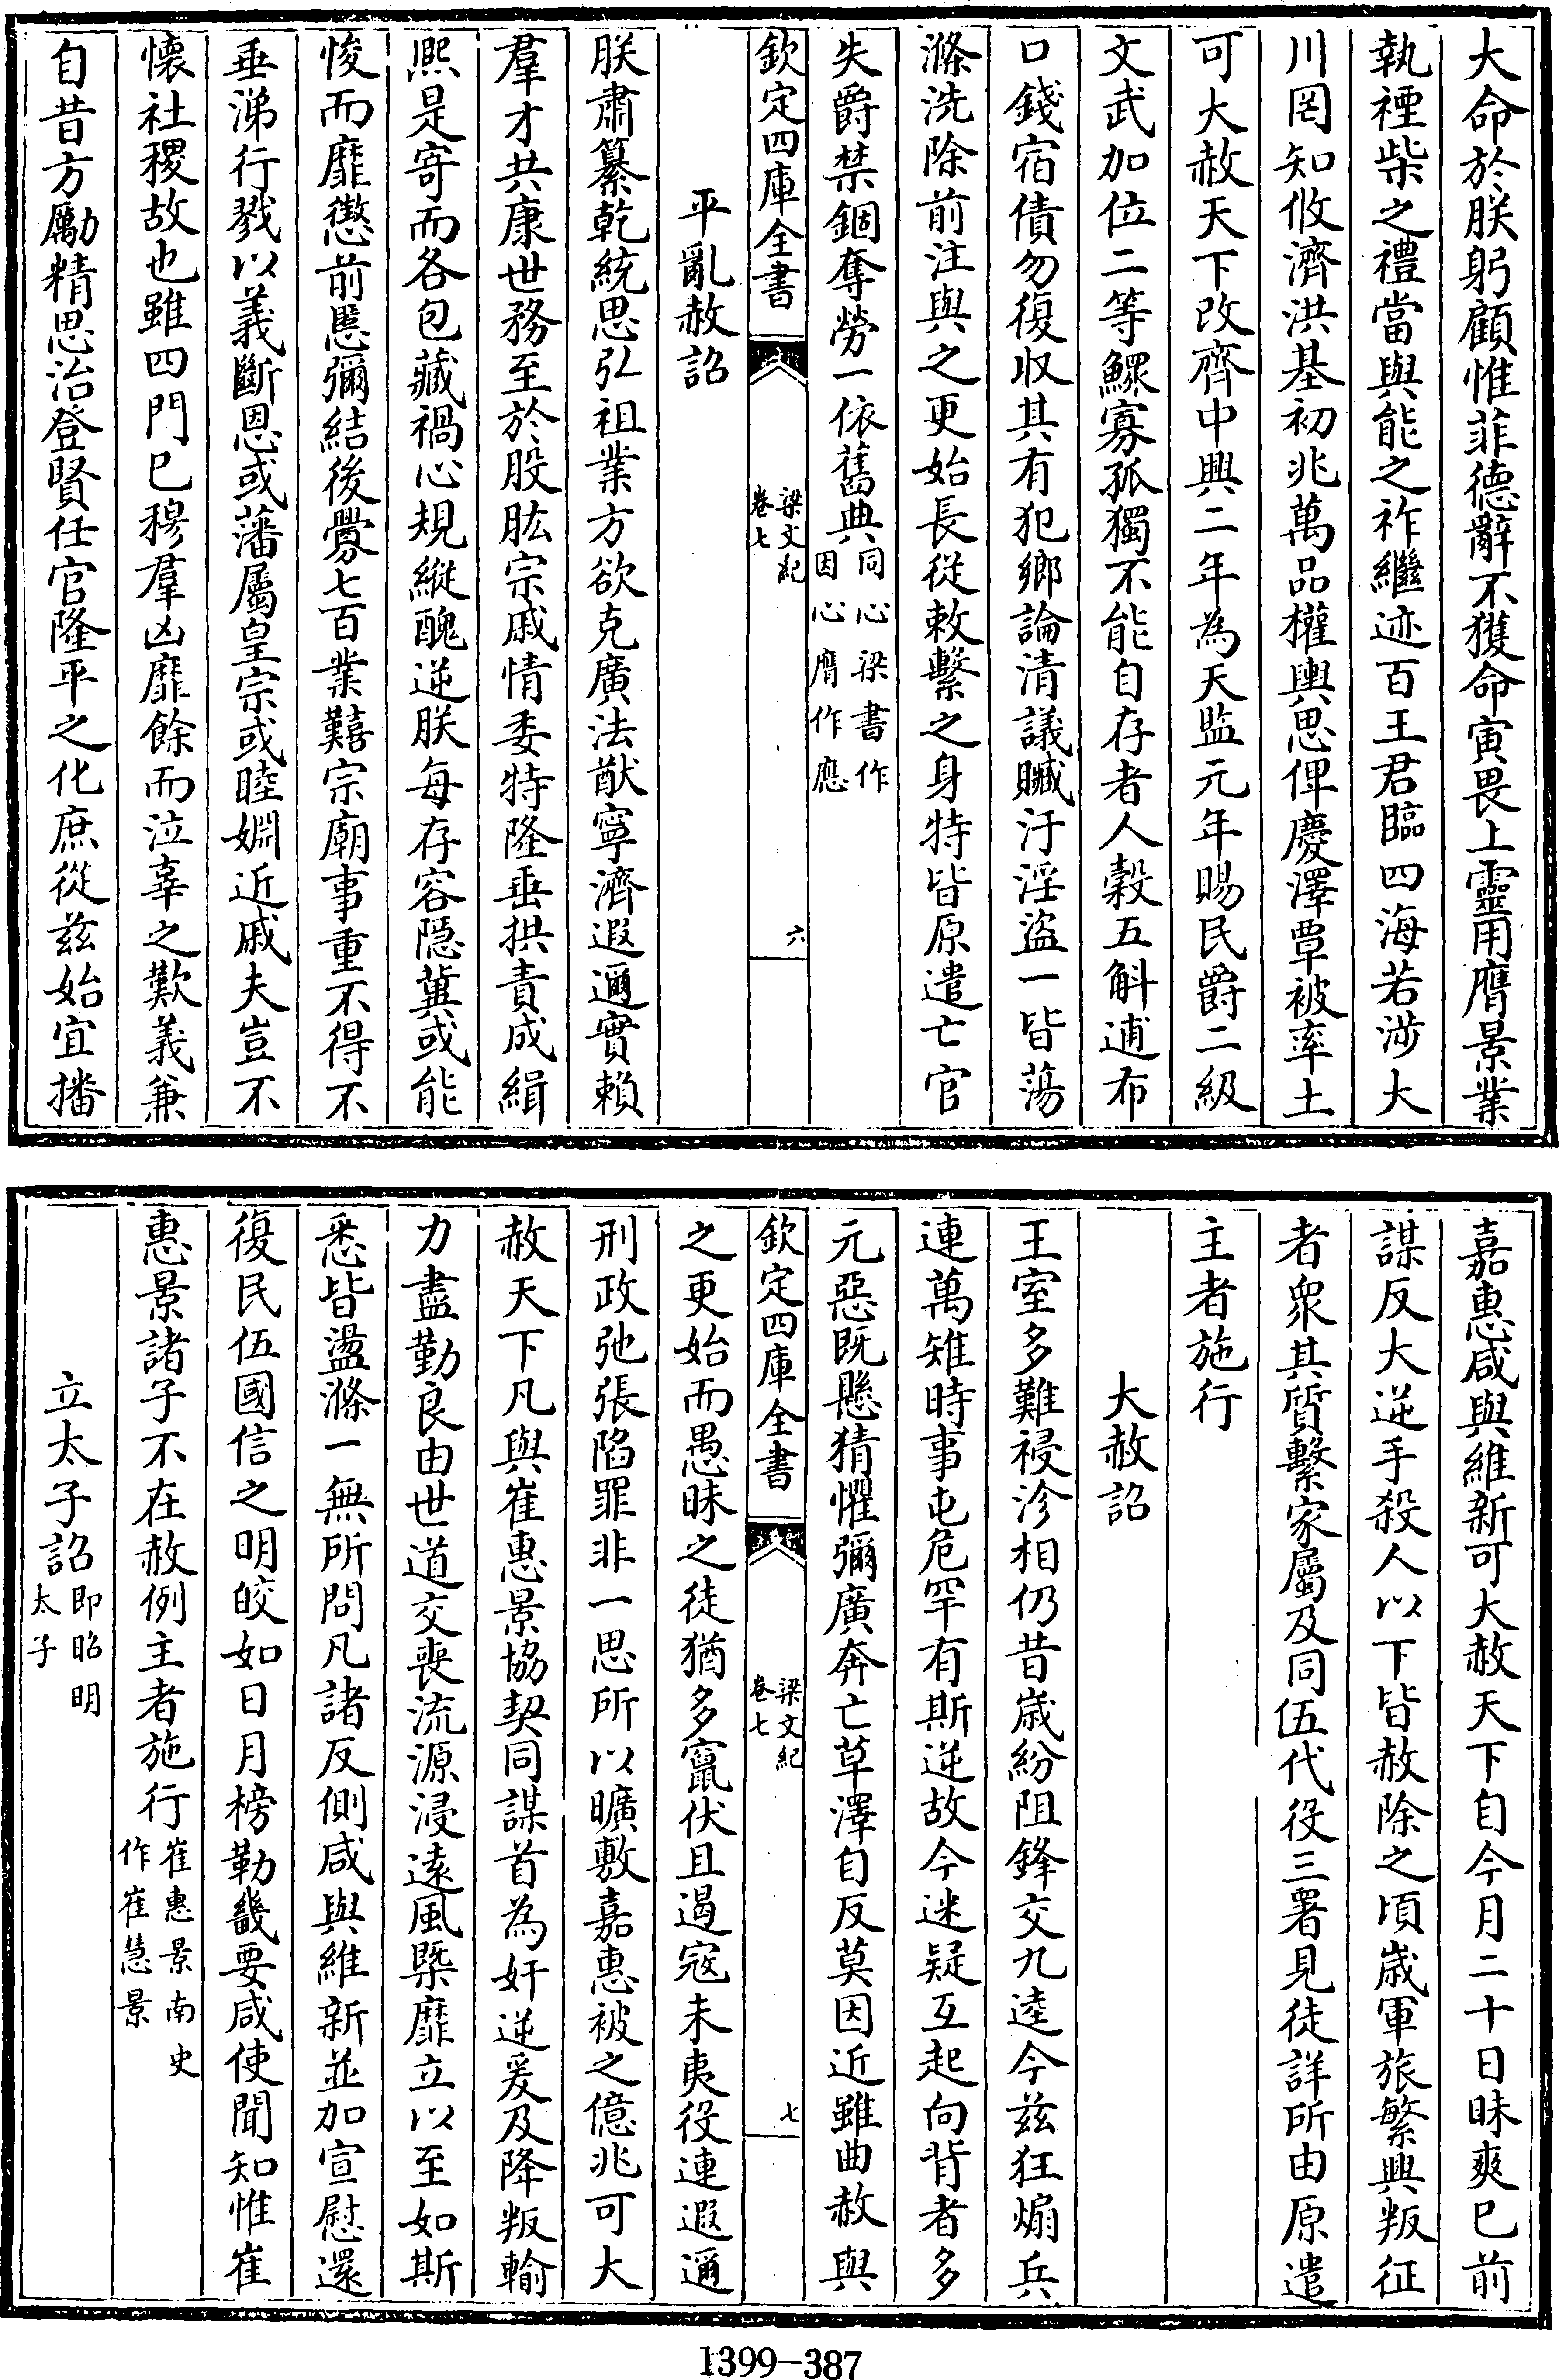 大命於朕躬顧惟菲德辭不獲命寅畏上靈用膺景業
執禋柴之禮當與能之祚繼迹百王君臨四海若涉大
川罔知攸濟洪基初兆萬品權輿思俾慶澤覃被率土
可大赦天下改齊中興二年為天監元年賜民爵二級
文武加位二等鰥寡孤獨不能自存者人穀五斛逋布
口錢宿債勿復収其有犯鄉論清議贓汙淫盜一皆蕩
滌洗除前注與之更始長従敕繫之身特皆原遣亡官
失爵禁錮奪勞一依舊典同心梁書作因心膺作應
欽定四庫全書
梁文紀
卷七
六
平亂赦詔
朕肅纂乾統思弘祖業方欲克廣法猷寧濟遐邇實賴
羣才共康世務至於股肱宗戚情委特隆垂拱責成緝
熙是寄而各包藏禍心規縱醜逆朕每存容隱冀或能
悛而靡懲前慝彌結後釁七百業囏宗廟事重不得不
垂涕行戮以義斷恩或藩屬皇宗或睦婣近戚夫豈不
懷社稷故也雖四門已穆羣凶靡餘而泣辜之歎義兼
自昔方勵精思治登賢任官隆平之化庶從兹始宜播
嘉惠咸與維新可大赦天下自今月二十日昧爽已前
謀反大逆手殺人以下皆赦除之頃歳軍旅繁興叛征
者衆其質繫家屬及同伍代役三署見徒詳所由原遣
主者施行
大赦詔
王室多難祲沴相仍昔歳紛阻鋒交九逵今兹狂煽兵
連萬雉時事屯危罕有斯逆故今迷疑互起向背者多
元惡既懸猜懼彌廣奔亡草澤自反莫因近雖曲赦與
欽定四庫全書
梁文紀
卷七
七
之更始而愚昧之徒猶多竄伏且遏宼未夷役連遐邇
刑政弛張陷罪非一思所以曠敷嘉惠被之億兆可大
赦天下凡與崔惠景協契同謀首為奸逆爰及降叛輸
力盡勤良由世道交喪流源浸遠風槩靡立以至如斯
悉皆盪滌一無所問凡諸反側咸與維新並加宣慰還
復民伍國信之明皎如日月榜勒畿要咸使聞知惟崔
惠景諸子不在赦例主者施行崔惠景南史作崔慧景
立太子詔即昭明太子
1399-387